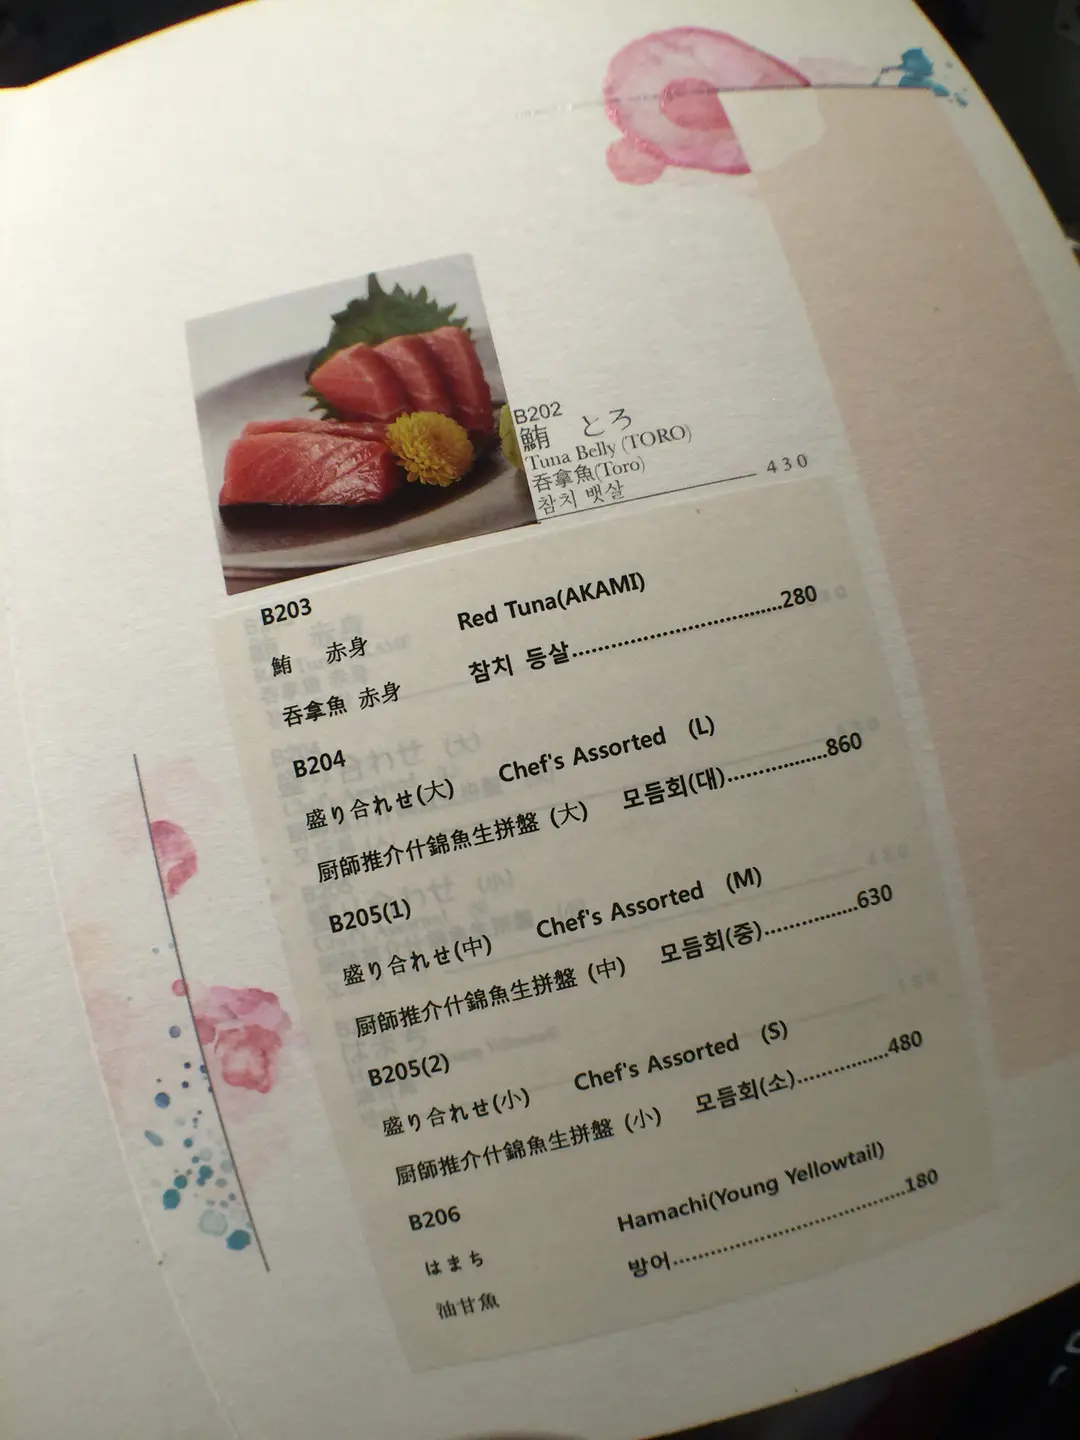 B202
鮪 とろ
Tuna Belly (TORO)
吞拿魚(Toro)
참치 뱃살 430
B203 Red Tuna(AKAMI)
鮪 赤身 참치 등살........................280
吞拿魚 赤身
B204 Chef's Assorted (L)
盛り合れせ(大) 모듬회(대)...............860
厨師推介什錦魚生拼盤 (大)
B205(1) Chef's Assorted (M)
盛り合れせ(中) 모듬회(중)..............630
厨師推介什錦魚生拼盤 (中)
B205(2) Chef's Assorted (S)
盛り合れせ(小) 모듬회(소)..............480
厨師推介什錦魚生拼盤 (小)
B206 Hamachi(Young Yellowtail)
はまち 방어...................................180
油甘魚